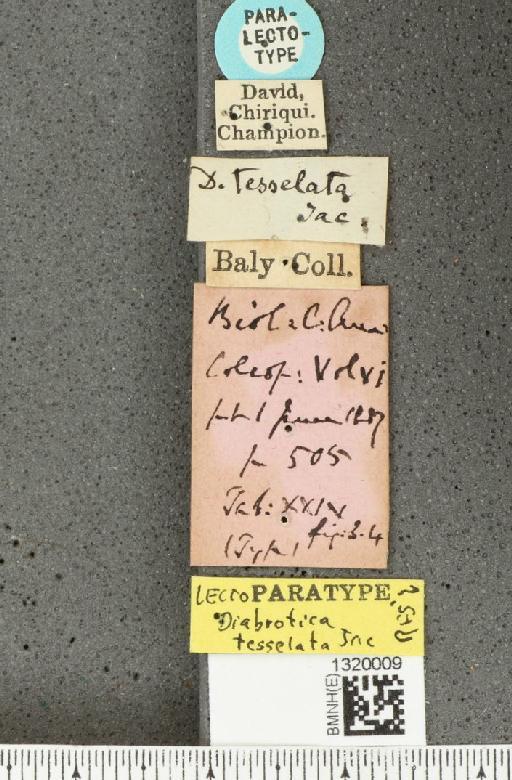 PARA-
LECTO-
TYPE
David,
Chiriqui.
Champion.
D. tesselata
Jac.
Baly Coll.
Biol: C: Amer
Coleop: Vol VI
pt 1 1887
p 505
Tab: XXIX
fig: 3.4
(Type)
LECTOPARATYPE
Diabrotica
tesselata Jac
1320009
BMNH(E)